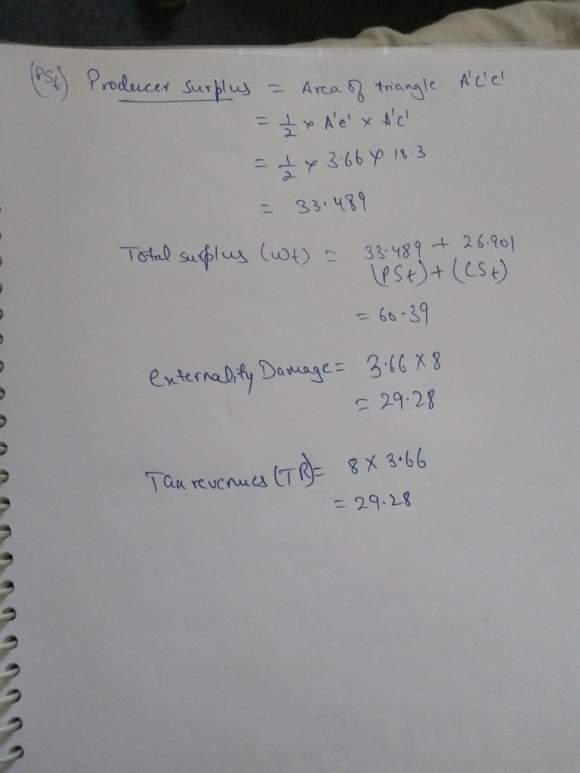 (PSt) Producer surplus = Area of triangle A'C'e'
= 1/2 × A'e' × A'C'
= 1/2 × 3.66 × 18.3
= 33.489
Total surplus (Wt) = 33.489 + 26.901
(PSt) + (CSt)
= 60.39
externality Damage = 3.66 × 8
= 29.28
Tax revenues (TR) = 8 × 3.66
= 29.28